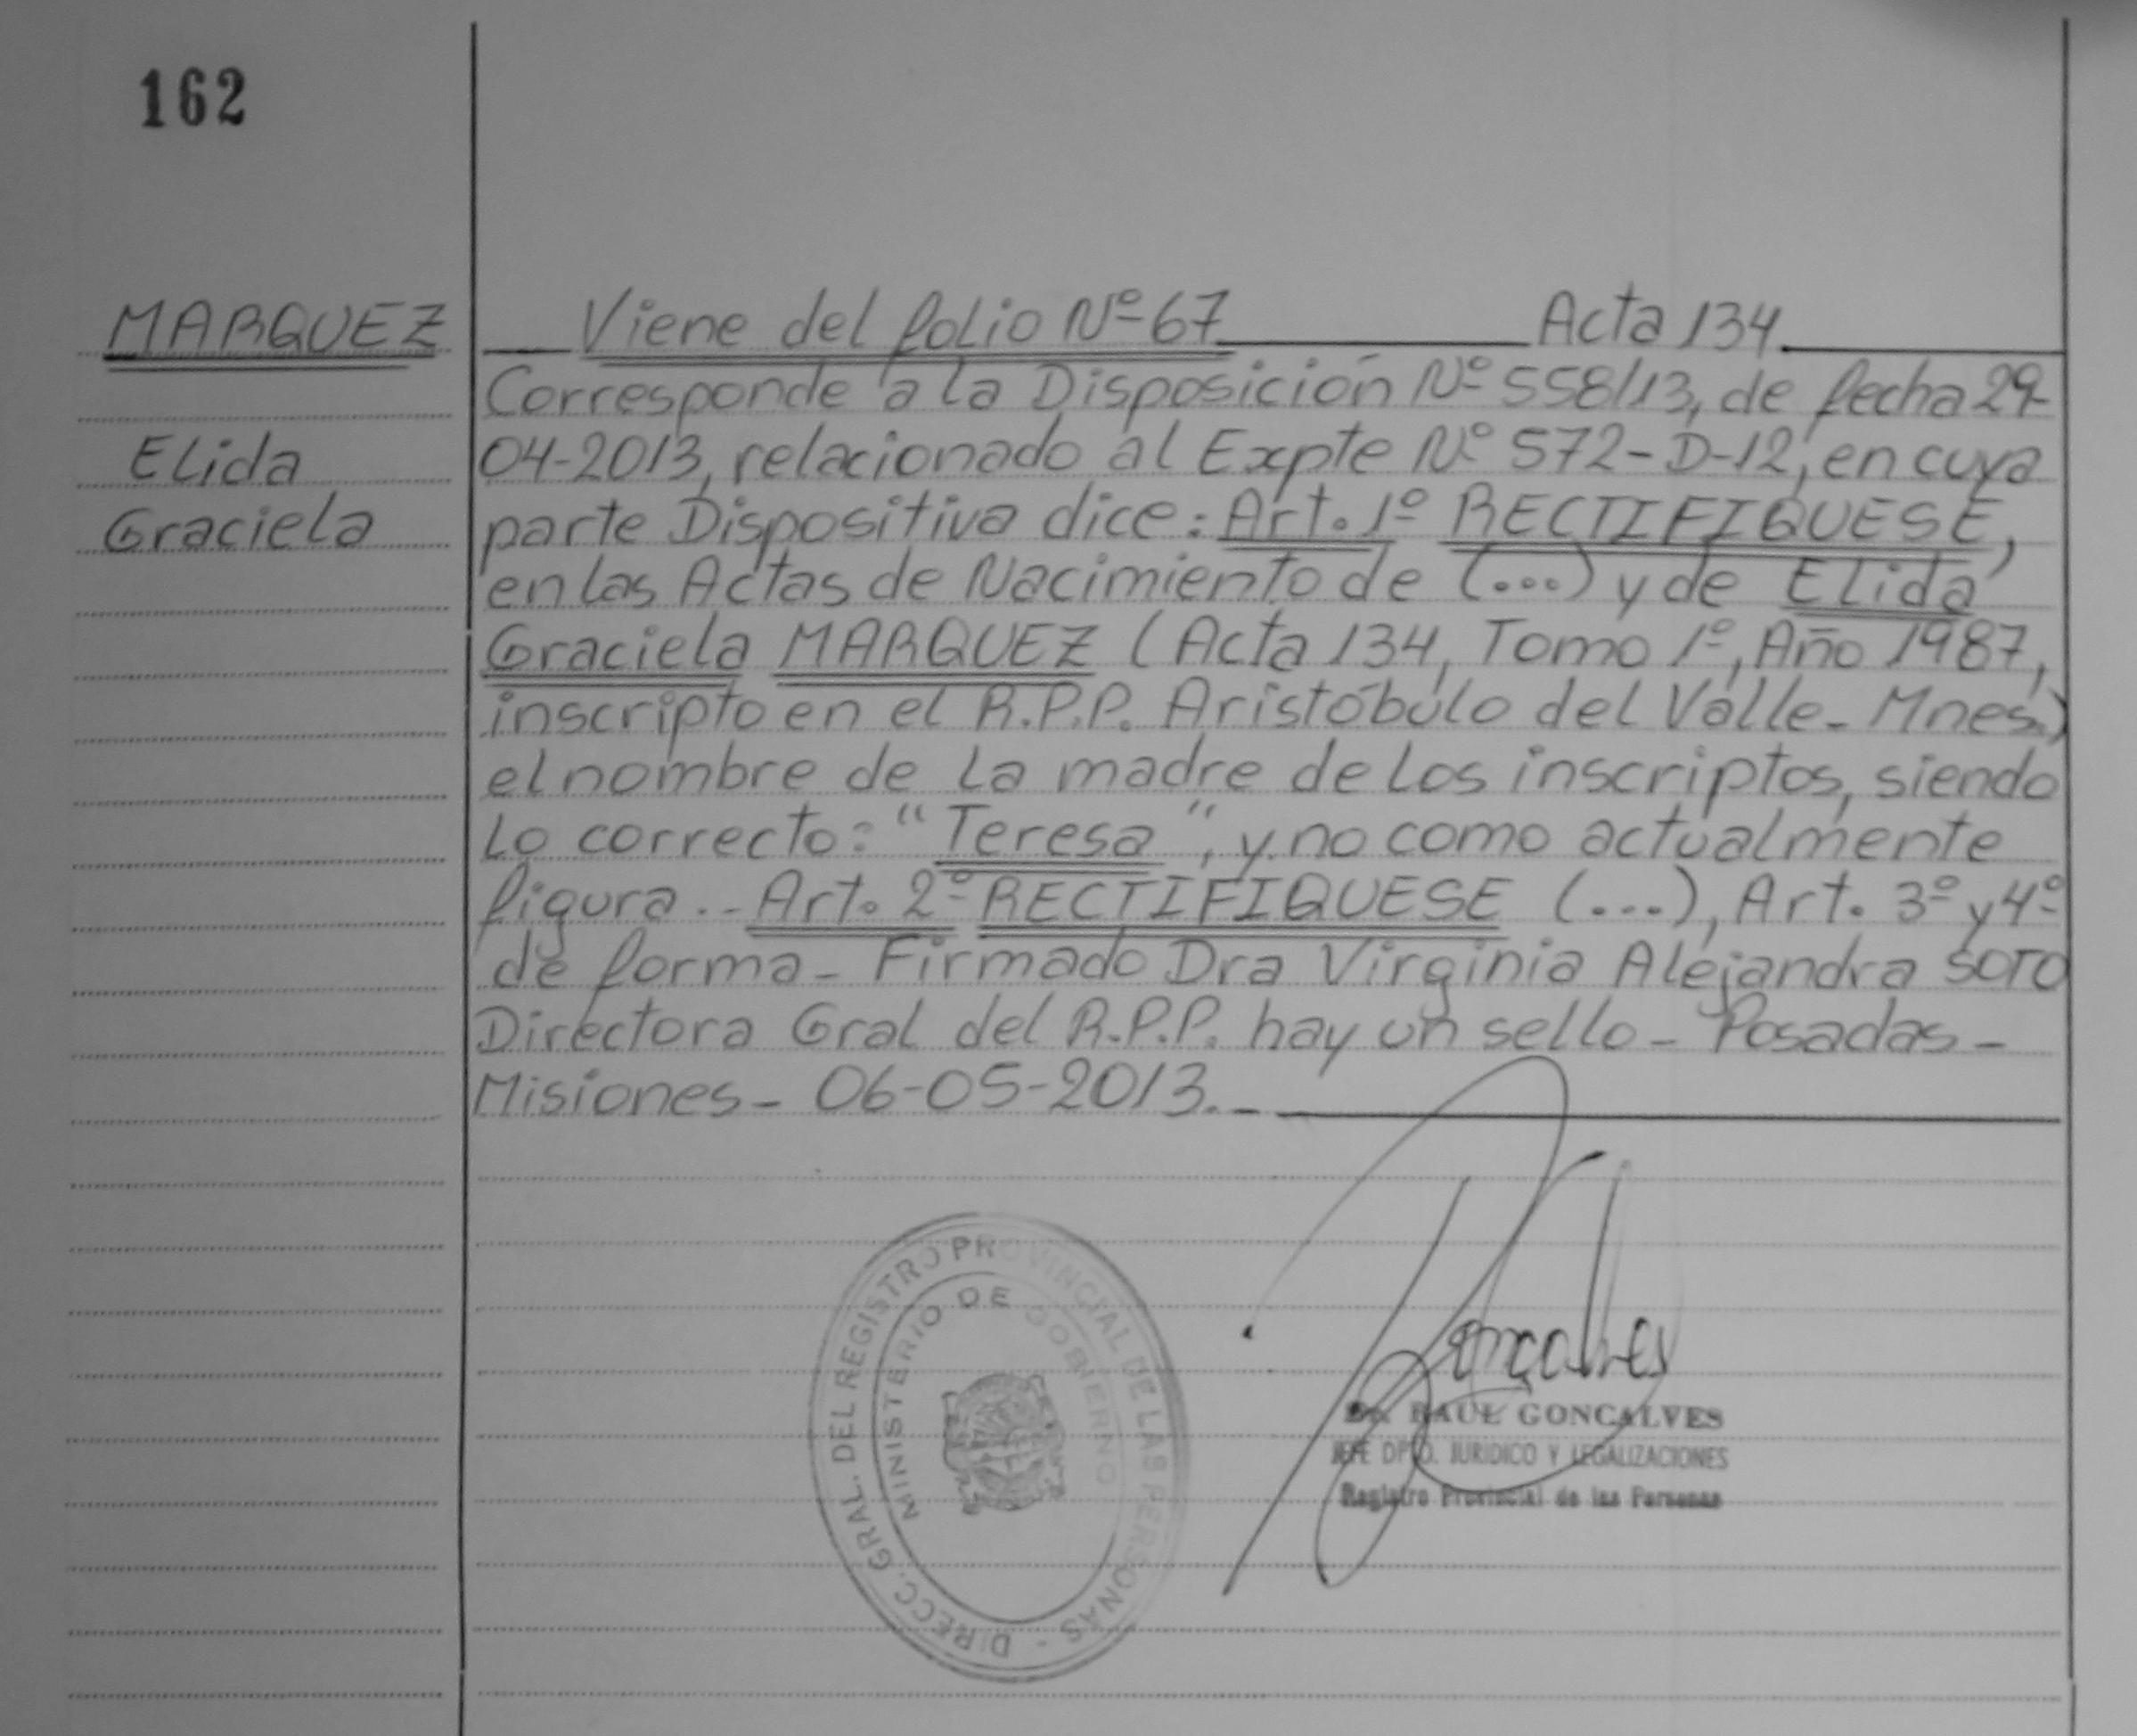 162
MARQUEZ
Elida
Graciela
Viene del folio Nº 67 Acta 134
Corresponde a la Disposición Nº 558/13, de fecha 29-
04-2013, relacionado al Expte Nº 572-D-12, en cuya
parte Dispositiva dice: Art. 1º RECTIFIQUESE,
en las Actas de Nacimiento de (...) y de Elida
Graciela MARQUEZ (Acta 134, Tomo 1º, Año 1987,
inscripto en el R.P.P. Aristóbulo del Valle - Mnes.)
el nombre de la madre de los inscriptos, siendo
lo correcto: "Teresa", y no como actualmente
figura.- Art. 2º RECTIFIQUESE (...), Art. 3º y 4º
de forma - Firmado Dra Virginia Alejandra SOTO
Directora Gral del R.P.P. hay un sello - Posadas -
Misiones - 06-05-2013.-
DIRECC. GRAL. DEL REGISTRO PROVINCIAL DE LAS PERSONAS -
MINISTERIO DE GOBIERNO
Gonçalves
Dr. RAUL GONCALVES
JEFE DPTO. JURIDICO Y LEGALIZACIONES
Registro Provincial de las Personas